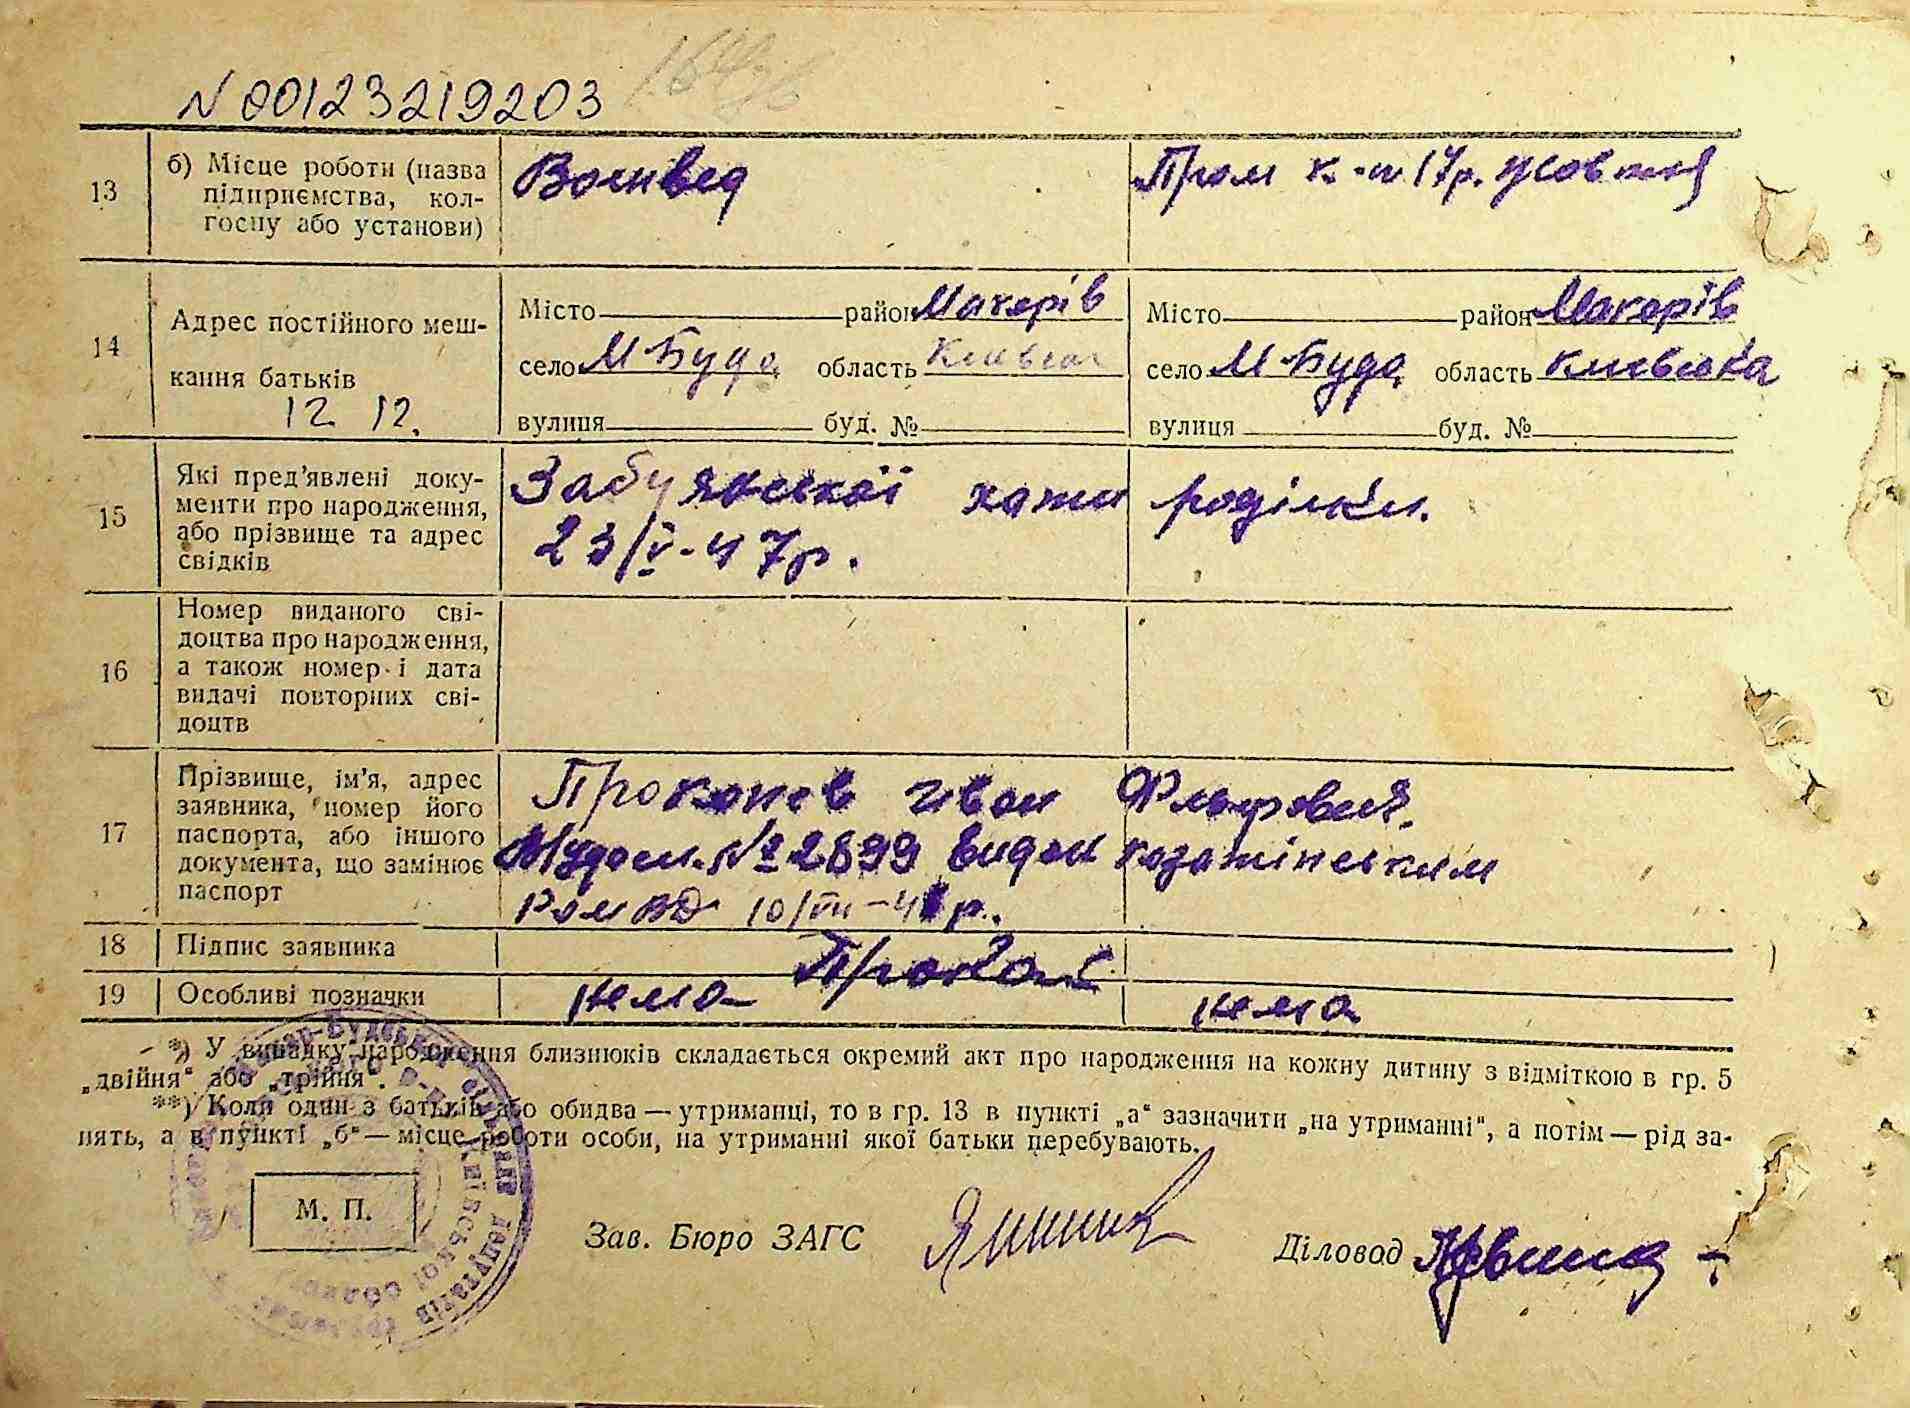 N 00123219203
13
б) Місце роботи (назва підприємства, кол-
госпу або установи)
Военвед
Пром к-т 17 р. Жовтня
14
Адрес постійного меш-
кання батьків
12 12.
Місто район Макарів
село М-Буда область Київська
вулиця буд. №
Місто район Макарів
село М-Буда область Київська
вулиця буд. №
15
Які пред'явлені доку-
менти про народження,
або прізвище та адрес
свідків
Забуянської хати роділки.
23/V-47р.
16
Номер виданого сві-
доцтва про народження,
а також номер і дата
видачі повторних сві-
доцтв
17
Прізвище, ім'я, адрес
заявника, номер його
паспорта, або іншого
документа, що замінює
паспорт
Прокопев Іван
№ 2899 видан козятінським
10/VII-4 р.
18 Підпис заявника
19 Особливі позначки
нема нема
*) У випадку народження близнюків складається окремий акт про народження на кожну дитину з відміткою в гр. 5
„двійня“ або „трійня“.
**) Коли один з батьків або обидва — утриманці, то в гр. 13 в пункті „а“ зазначити „на утриманні“, а потім — рід за-
нять, а в пункті „б“ — місце роботи особи, на утриманні якої батьки перебувають.
М. П.
Зав. Бюро ЗАГС
Діловод